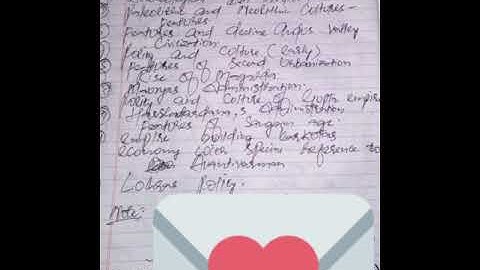 Neolithic and Mesolithic Cultures-
Features.
Features and decline Indus Valley
Civilization.
Polity and Culture (early)
Features of Second Urbanization
Rise of Magadha.
Mauryas Administration.
Polity and Culture of Gupta empire
Harshavardhan,s Administration
Features of Sangam age.
empire building
economy with special reference to
Avantivarman
Policy.
Note: